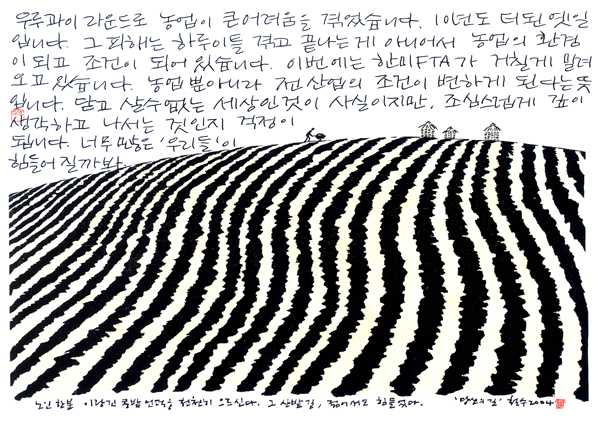 우루과이 라운드로 농업이 큰 어려움을 겪었습니다. 10년도 더 된 옛일
입니다. 그 피해는 하루이틀 겪고 끝나는게 아니어서 농업의 환경
이 되고 조건이 되어 있습니다. 이번에는 한미FTA가 거칠게 밀려
오고 있습니다. 농업 뿐아니라 전 산업의 조건이 변하게 된다는 뜻
입니다. 닫고 살 수 없는 세상인 것이 사실이지만, 조심스럽게 깊이
생각하고 나서는 것인지 걱정이
됩니다. 너무 많은 '우리들'이
힘들어 질까봐
노인 한분 이랑긴 콩밭 언덕을 천천히 오르신다. 그 산밭 길, 젊어서도 힘들었다. 철수 2004